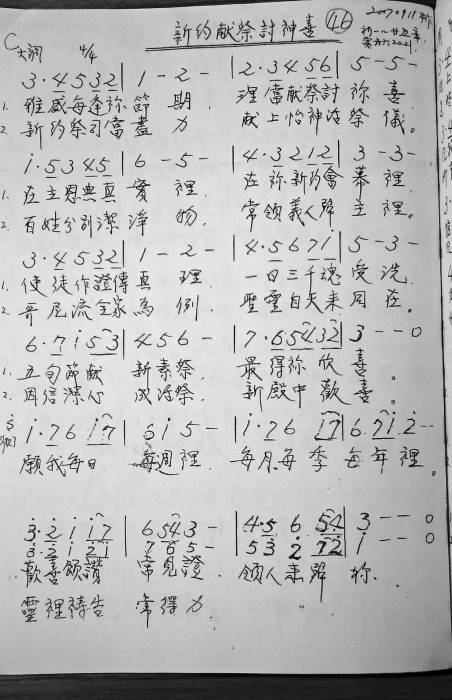 新約献祭討神喜 46 2007.09.11
C大調 4/4
3·4532 | 1-2- | 2·3456 | 5-5-
1. 雖感每逢祢節期. 理當献祭討祢喜.
2. 新約祭司當盡力 献上怡神活祭儀.
1·5345 | 6-5- | 4·3212 | 3-3-
1. 在主恩典真實裡. 在祢新約會幕裡.
2. 百姓分別潔淨物. 常領義人歸主裡.
3·4532 | 1-2- | 4·5671 | 5-3-
1. 使徒作證傳真理. 一日三千魂受洗.
2. 哥尼流全家為例. 聖靈自天來同在.
6·7153 | 456- | 7·65432 | 3--0
1. 五旬節献新素祭. 最得祢欣喜。
2. 因信潔心成活祭. 新殿中歡喜。
1·7617 | 515- | 1·7617 | 6·712-
願我每日每週裡. 每月每季每年裡。
3·2117 | 6543- | 4·5654 | 3--0
3·2121 | 765- | 53272 | 1--0
歡喜頌讚常見證. 領人來歸祢.
靈裡禱告常得力. 〃